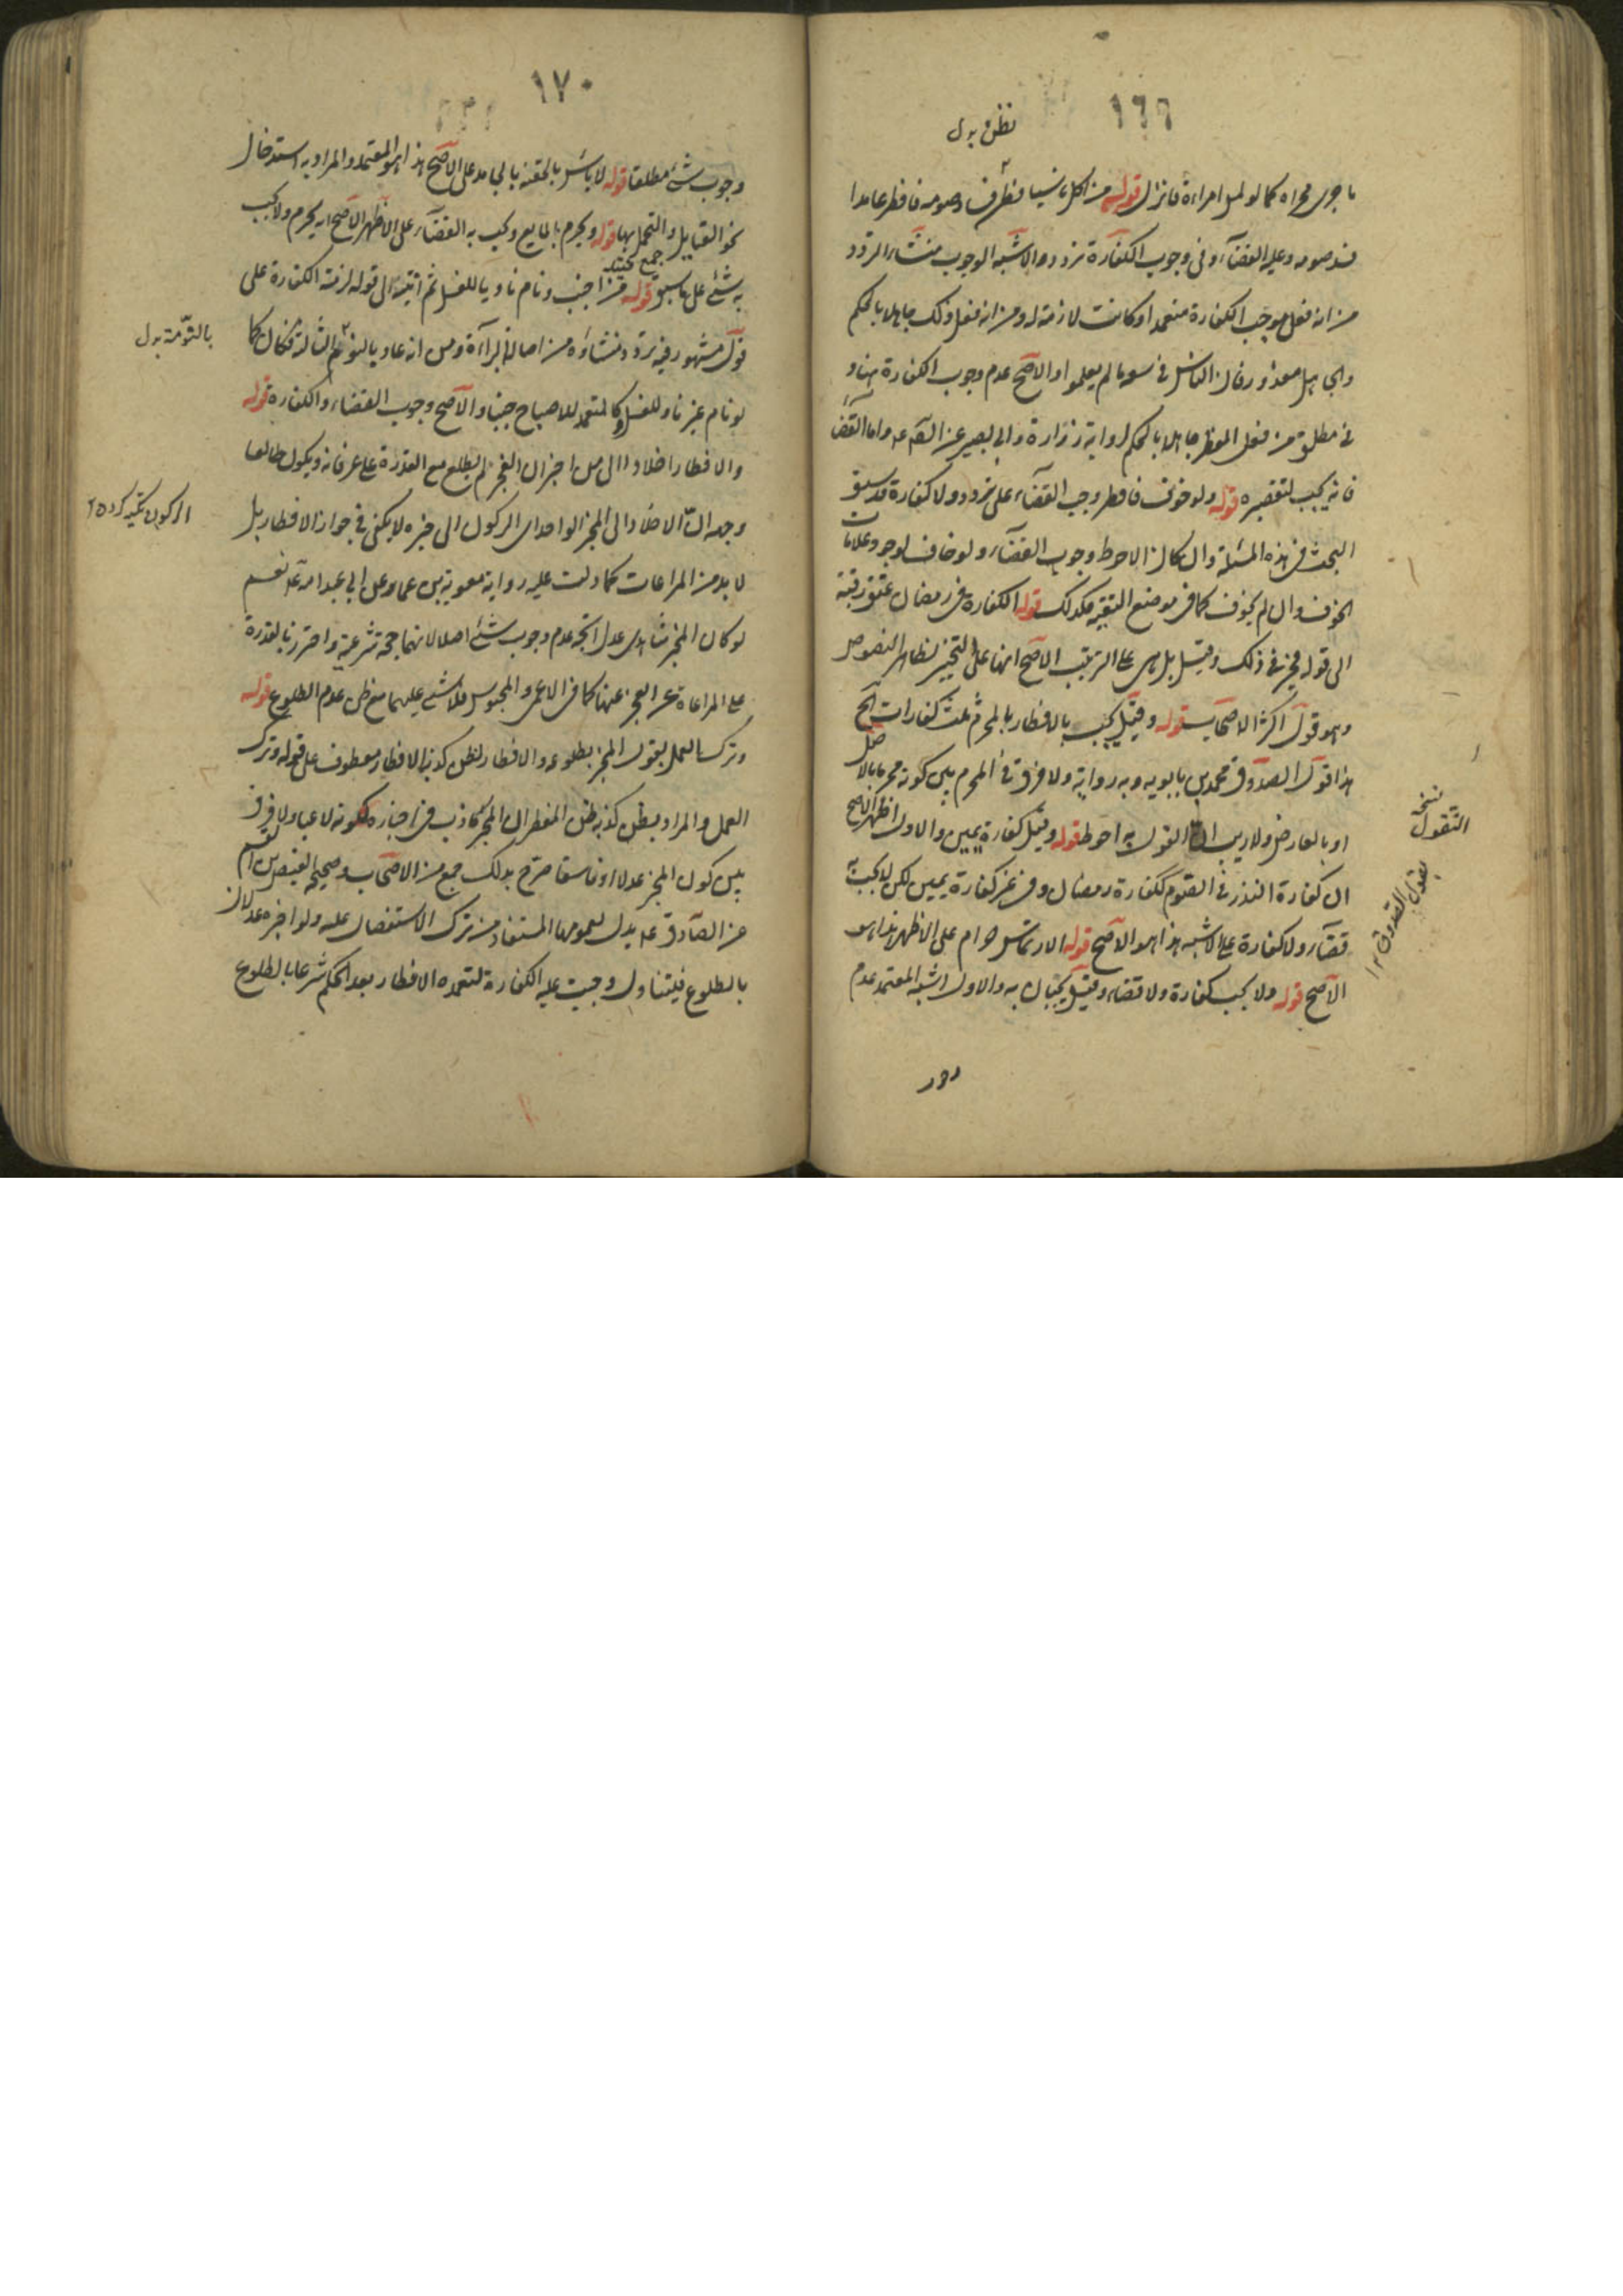 ١٦٩
فظن بدل
ما جرى مجراه كما لو لمس امراءة فانزل قوله من اكل ناسيا فظن فساد صومه فافطر عامدا
فسد صومه وعليه القضاء وفي وجوب الكفارة تردد والاشبه الوجوب منشاء التردد
من انه فعل موجب الكفارة متعمدا وكانت لازمة له ومن انه فعل ذلك جاهلا بالحكم
والجاهل معذور فان الناس في سعة ما لم يعلموا والاصح عدم وجوب الكفارة هنا و
في مطلق من فعل المفطر جاهلا بالحكم لرواية زرارة وابي بصير عن الباقر واما القضاء
فانه يجب لتقصيره قوله ولو خوف فافطر وجب القضاء على تردد ولا كفارة قد سبق
البحث في هذه المسئلة وان كان الاحوط وجوب القضاء ولو خاف لوجود علامات
الخوف وان لم يخوف كما في موضع التقية فكذلك قوله الكفارة في رمضان عتق رقبة
الى قوله مخير في ذلك وقيل بل هي على الترتيب الاصح انها على التخيير لظاهر النصوص
وهو قول اكثر الاصحاب قوله وقيل يجب بالافطار بالمحرم ثلث كفارات الخ
هذا قول الصدوق محمد بن بابويه وبه رواية ولا فرق في المحرم بين كونه محرما بالاصل
او بالعارض ولا ريب ان القول به احوط قوله وقيل كفارة يمين والاول اظهر الاصح
ان كفارة النذر في الصوم ككفارة رمضان وفي غيره كفارة يمين لكن لا يجب به
قضاء ولا كفارة على الاشبه هذا هو الاصح قوله الارتماس حرام على الاظهر هذا هو
الاصح قوله ولا يجب كفارة ولا قضاء وقيل يجبان به والاول اشبه المعتمد عدم
نسخة
التقول
بقول الصدوق ١٢
١٧٠
وجوب شئ مطلقا قوله لا باس بالحقنة بالجامد على الاصح هذا هو المعتمد والمراد به استدخال
نحو الفتايل والتحمل بها قوله ويحرم بالمايع ويجب به القضاء على الاظهر الاصح انه يحرم ولا يجب
به شئ على ما سبق قوله من اجنب ونام ناويا للغسل ثم انتبه الى قوله لزمته الكفارة على
قول مشهور فيه تردد منشاؤه من اصالة البراءة ومن انه عاد بالنوم الثالثة فكان كما
لو نام غير ناو للغسل وكالمتعمد للاصباح جنبا والاصح وجوب القضاء والكفارة قوله
والافطار اخلادا الى من اخبر ان الفجر لم يطلع مع القدرة على عرفانه ويكون طالعا
وجه ان الاخلاد الى المخبر الواحد اى الركون الى خبره لا يكفي في جواز الافطار بل
لا بد من المراعات كما دلت عليه رواية معوية بن عمار عن ابي عبد الله نعم
لو كان المخبر شاهدى عدل اتجه عدم وجوب شئ اصلا لانهما حجة شرعية واحترز بالقدرة
على المراعاة عن العجز عنها كما في الاعمى والمحبوس فلا شئ عليهما مع ظن عدم الطلوع قوله
وترك العمل بقول المخبر بطلوعه والافطار لظن كذبه الافطار معطوف على قوله وترك
العمل والمراد بظن كذبه ظن المفطر ان المخبر كاذب في اخباره لكونه لاعبا ولا فرق
بين كون المخبر عدلا او فاسقا صرح بذلك جمع من الاصحاب وصحيحة العيص بن القسم
عن الصادق يدل لعمومها المستفاد من ترك الاستفصال عليه ولو اخبره عدلان
بالطلوع فيتناول وجبت عليه الكفارة لتعمده الافطار بعد الحكم شرعا بالطلوع
جمع
بالنومة بدل
الركون تكيه كردن